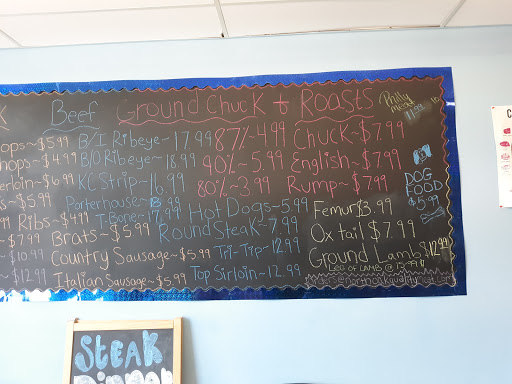 Beef
Ground Chuck & Roasts
Philly
ops~$5.99
hops~$4.99
erloin~$6.99
Ribs~$4.99
~$7.99
~$10.99
~$12.99
B/I Ribeye~17.99
B/O Ribeye~18.99
KC Strip~16.99
Porterhouse~
T-Bone~17.99
Brats~$5.99
Country Sausage~$5.99
Italian Sausage~$5.99
87%~4.99
90%~5.99
80%~3.99
Hot Dogs~5.99
Round Steak~7.99
Tri-Tip~12.99
Top Sirloin~12.99
Chuck~$7.99
English~$7.99
Rump~$7.99
Femur $3.99
Ox tail $7.99
Ground Lamb $12.99
LEG OF LAMB @ 13.99
DOG
FOOD
$5.99
STEAK